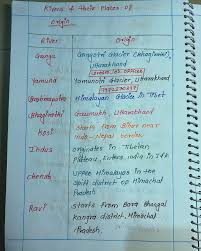 Rivers & their Places of
Origin
River
Origin
Ganga
Gangotri Glacier (Bhagirathi),
Uttarakhand
Yamuna
Yamunotri Glacier, Uttarakhand
Brahmaputra
Himalayan Glacier in Tibet
Bhagirathi
Gaumukh, Uttarakhand
Kosi
Starts from Bihar near
Indo-Nepal border
Indus
originates in Tibetan
Plateau, Enters India in J&k
Chenab
Upper Himalayas in the
Spiti district of Himachal
Pradesh
Ravi
Starts from Bara Bhangal
Kangra district, Himachal
Pradesh.